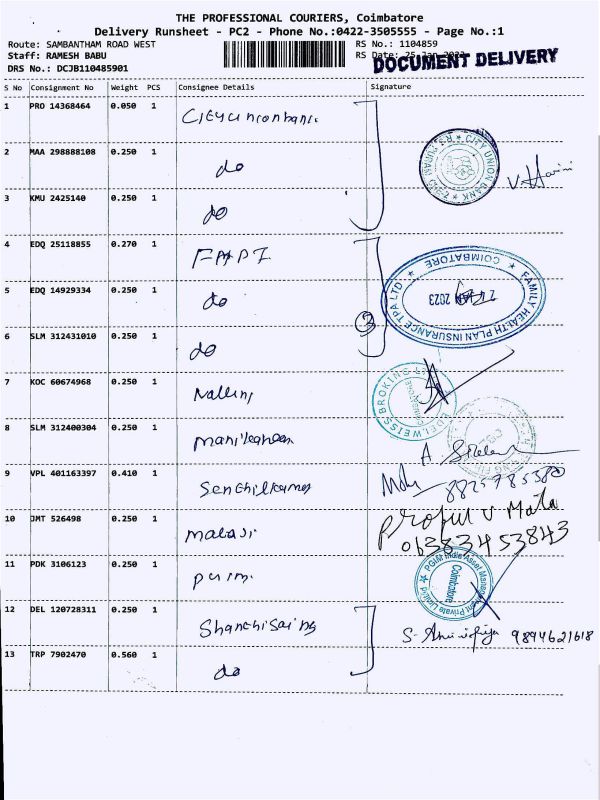 THE PROFESSIONAL COURIERS, Coimbatore
Delivery Runsheet - PC2 - Phone No.:0422-3505555 - Page No.:1
Route: SAMBANTHAM ROAD WEST
RS No.: 1104859
Staff: RAMESH BABU
RS Date: 25-Jan-2023
DOCUMENT DELIVERY
DRS No.: DCJB110485901
S No Consignment No Weight PCS Consignee Details Signature
1 PRO 14368464 0.050 1
2 MAA 298888108 0.250 1 do
CITY UNION BANK
V. Harini
3 KMU 2425140 0.250 1 do
4 EDQ 25118855 0.270 1
FAMILY HEALTH PLAN INSURANCE TPA LTD
COIMBATORE
2023
5 EDQ 14929334 0.250 1 do
3
6 SLM 312431010 0.250 1 do
7 KOC 60674968 0.250 1 Nallini
EDELWEISS BROKING
8 SLM 312400304 0.250 1 manikandan
A.
9 VPL 401163397 0.410 1 Senthilkumar
8825785380
10 JMT 526498 0.250 1
Praful V Mata
06383453843
11 PDK 3106123 0.250 1
PGIM India Asset Management Private Limited
Coimbatore
12 DEL 120728311 0.250 1
9894621618
13 TRP 7902470 0.560 1 do